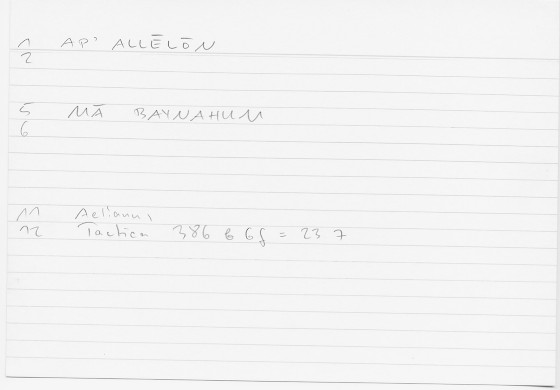 1 AP' ALLĒLŌN
2
5 MĀ BAYNAHUM
6
11 Aelianus,
12 Tactica 386 b 6f = 23 7